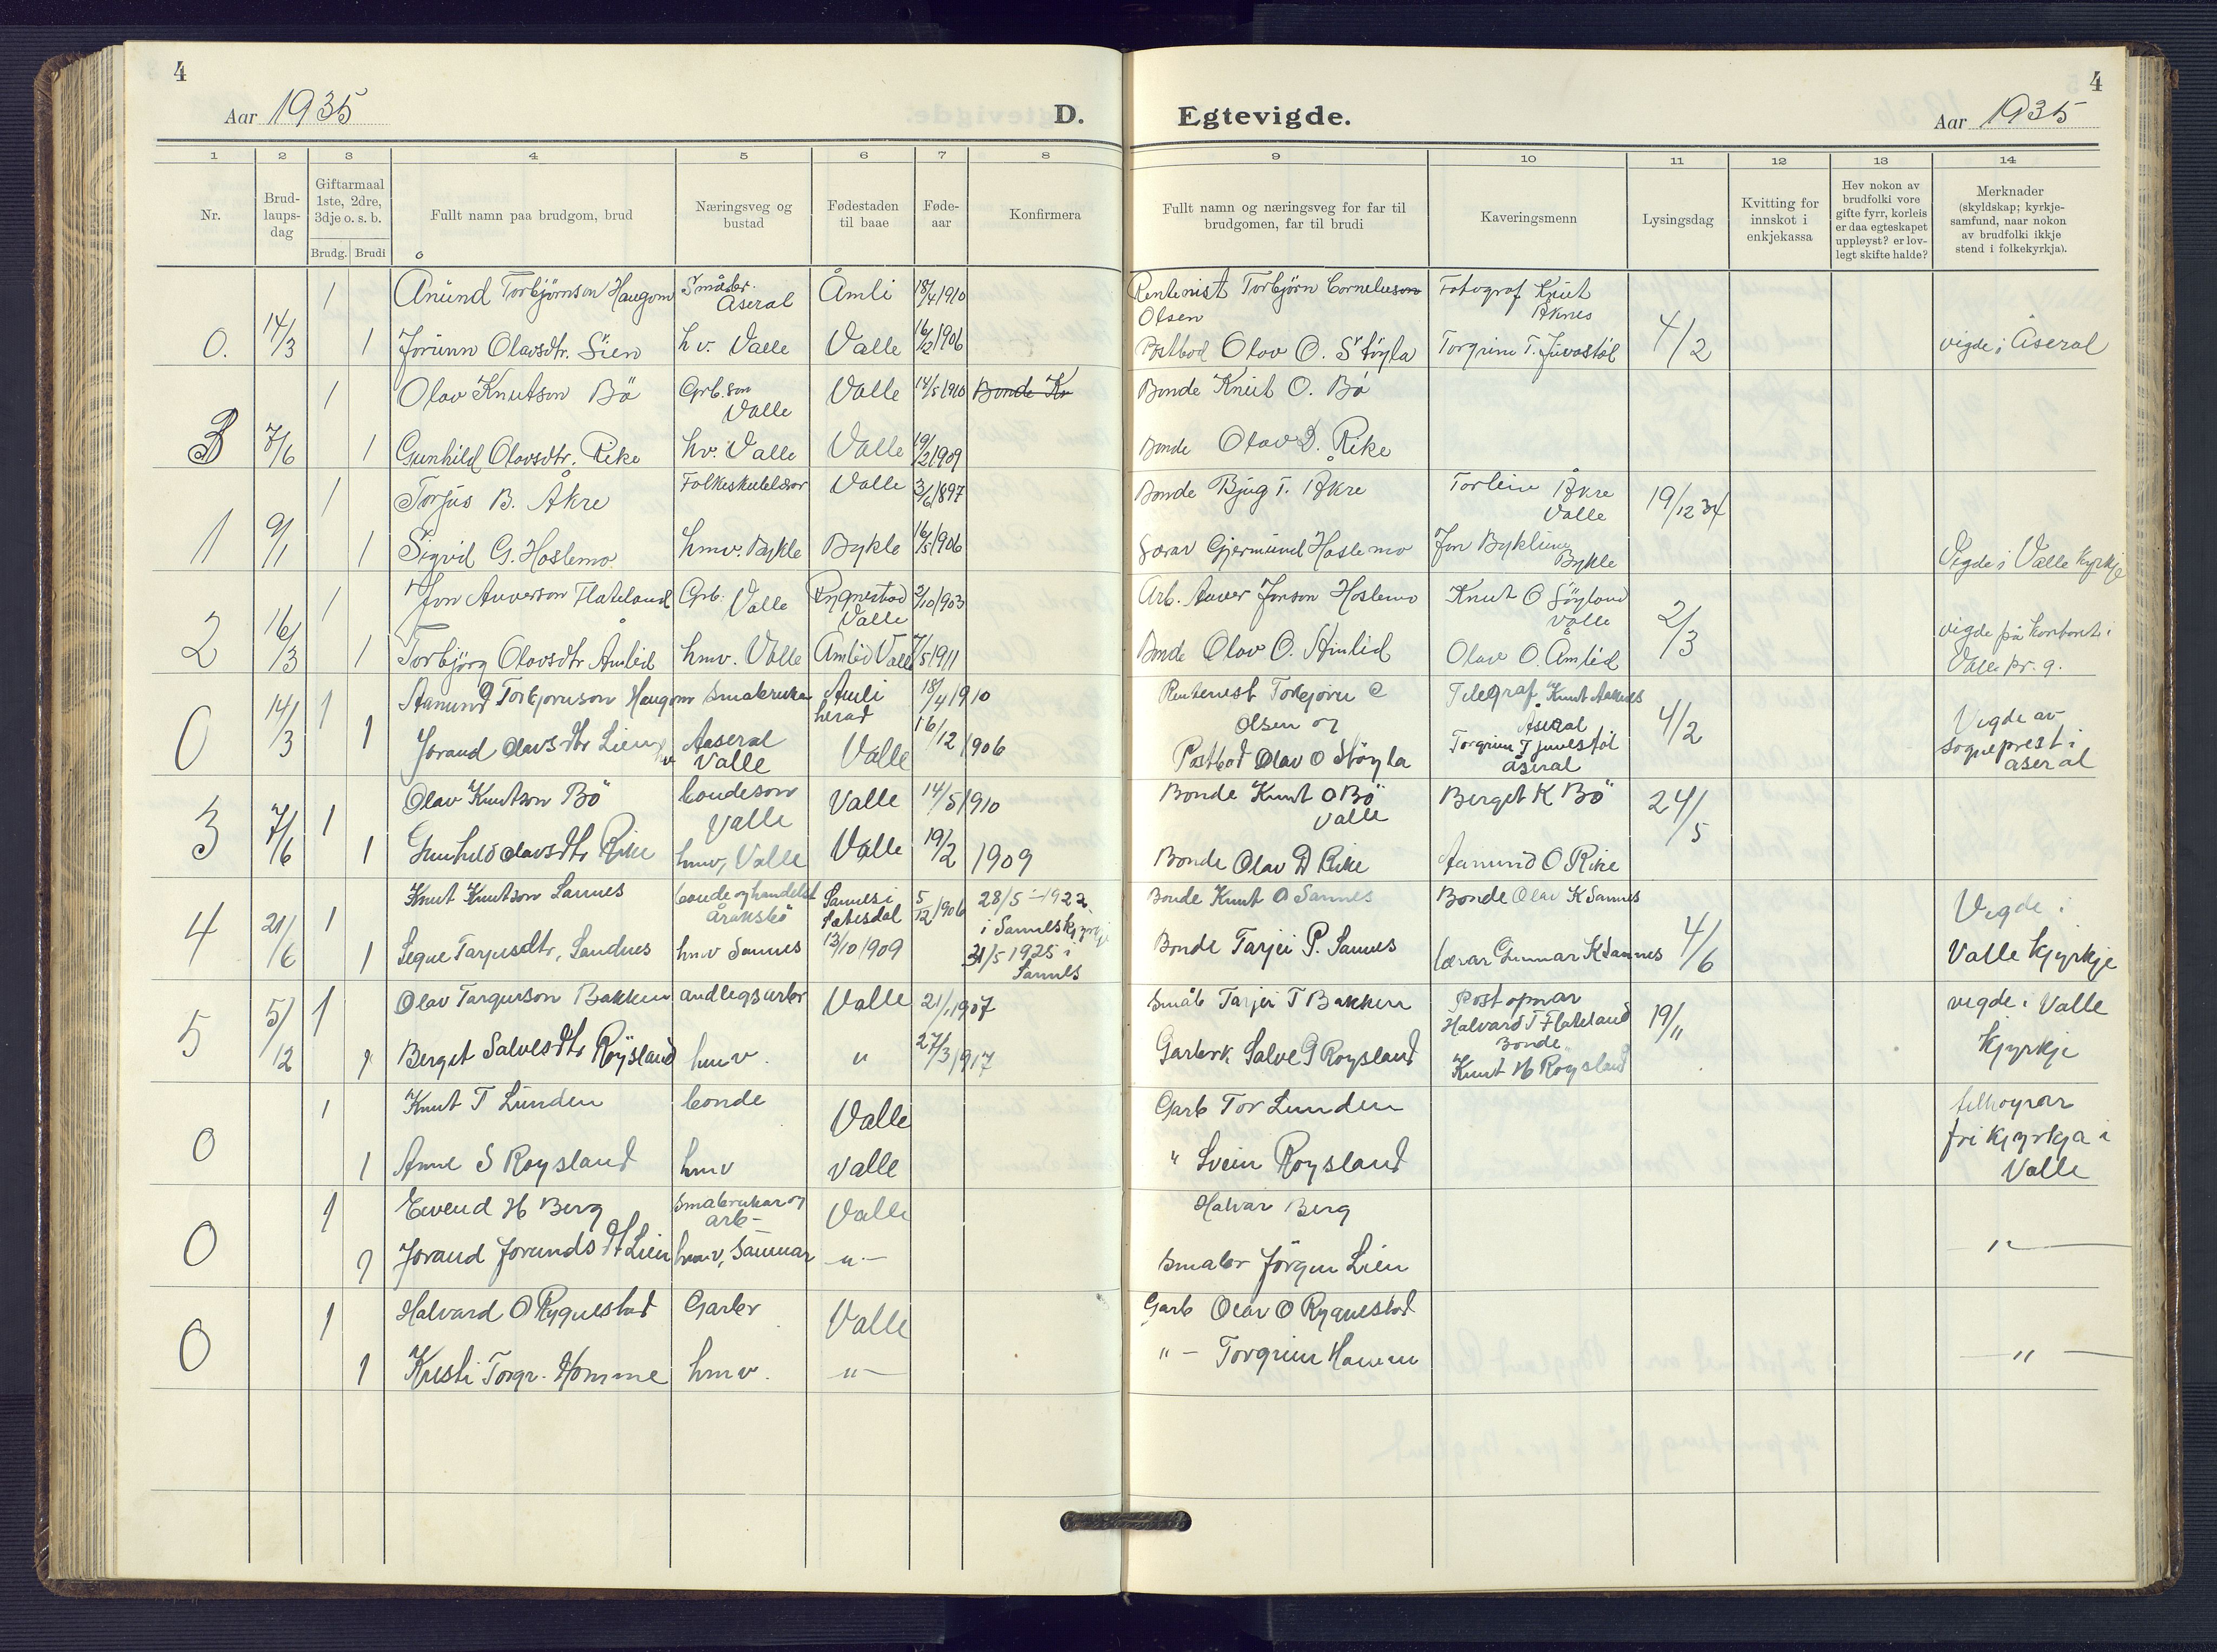 4
Aar 1935
D.
Egtevigde.
Aar 1935
4
1 2 3 4 5 6 7 8 9 10 11 12 13 14
Nr.
Brud-
laups-
dag
Giftarmaal
1ste, 2dre,
3dje o. s. b.
Brudg. Brudi
Fullt namn paa brudgom, brud
Næringsveg og
bustad
Fødestaden
til baae
Føde-
aar
Konfirmera
Fullt namn og næringsveg for far til
brudgomen, far til brudi
Kaveringsmenn
Lysingsdag
Kvitting for
innskot i
enkjekassa
Hev nokon av
brudfolki vore
gifte fyrr, korleis
er daa egteskapet
uppløyst? er lov-
legt skifte halde?
Merknader
(skyldskap; kyrkje-
samfund, naar nokon
av brudfolki ikkje
stend i folkekyrkja).
1 Anund Torbjørnson Haugom Småbr. Åseral Åmli 18/4 1910 Rentenist Torbjörn Corneliuson Olsen Fotograf Knut Åknes
0. 14/3 1 Jorunn Olavsdtr. Lien hv. Valle Valle 16/12 1906 Postbod Olav O. Stöyla Torgrim T. Juvastöl 4/2 vigde i Åseral
1 Olav Knutson Bö Grb. son Valle Valle 14/5 1910 Bonde Kn Bonde Knut O. Bö
3 7/6 1 Gunhild Olavsdtr. Rike hv. Valle Valle 19/2 1909 Bonde Olav D. Rike
1 Torjus B. Åkre Folkeskulelærar Valle 3/6 1897 Bonde Bjug T. Åkre Torleiv Åkre Valle 19/12 34
1 9/1 1 Sigrid G. Hoslemo hmv. Bykle Bykle 16/5 1906 Lærar Gjermund Hoslemo Jon Byklum Bykle Vigde i Valle kyrkje
1 Jon Anverson Flateland Grb. Valle Rygnestad Valle 2/10 1903 Arb. Anver Jonson Hoslemo Knut O Löyland Valle
2 16/3 1 Torbjörg Olavsdtr Åmlid hmv. Valle Åmlid Valle 7/5 1911 Bonde Olav O. Åmlid Olav O. Åmlid 2/3 vigde på kontoret i Valle pr. g.
0 14/3 1 Aanund Torbjornson Haugom Smabrukar Amli herad 18/4 1910 Rentenist Torbjörn C Olsen og Telegraf Knut Aaknes Åseral
1 Jorand Olavsdtr Lien hv Aaseral Valle Valle 16/12 1906 Postbod Olav O Stöyla Torgrim T Juvestöl åseral 4/2 Vigde av sogneprest i åseral
3 7/6 1 Olav Knutson Bö bondeson Valle Valle 14/5 1910 Bonde Knut O Bö Valle Berget K Bö 24/5
1 Gunhild Olavsdtr Rike hmv, Valle Valle 19/2 1909 Bonde Olav D Rike Aanund O. Rike
4 21/6 1 Knut Knutson Sannes bonde og handelst Årakstö Sannes i Setesdal 5/12 1906 28/5 - 1922 i Sannes kyrkje Bonde Knut O Sannes Bonde Olav K Sannes
1 Signe Tarjusdtr, Sandnes hmv Sannes 13/10 1909 31/5 1925 i Sannes Bonde Tarjei P. Sannes lærar Gunnar K Sannes 4/6 Vigde i Valle kjyrkje
5 5/12 1 Olav Targurson Bakken andlegs arbr Valle 21/1 1907 Småb Tarjei T Bakken Postopnar Halvard T Flateland 19/11 vigde i Valle kjyrkje
1 Berget Salvesdtr Röysland hmv. " 27/3 1917 Garbrk Salve G Roysland Bonde Knut H Roysland
0 1 Knut T Lunden bonde Valle Garb Tor Lunden tilhoyrar frikjyrkja i Valle
1 Anne S Roysland hmv Valle " Svein Roysland
0 1 Eivend H Berg Smabrukar og arb- Valle Halvar Berg
1 Jorand Jorundsdt Lien hmv, Saumar -"- Smabr Jörgen Lien "-
0 1 Halvard O Rygnestad Garbr Valle Garb Olav O Rygnestad
1 Kristi Torgr. Homme hmv. -"- "- Torgrim Homm "-